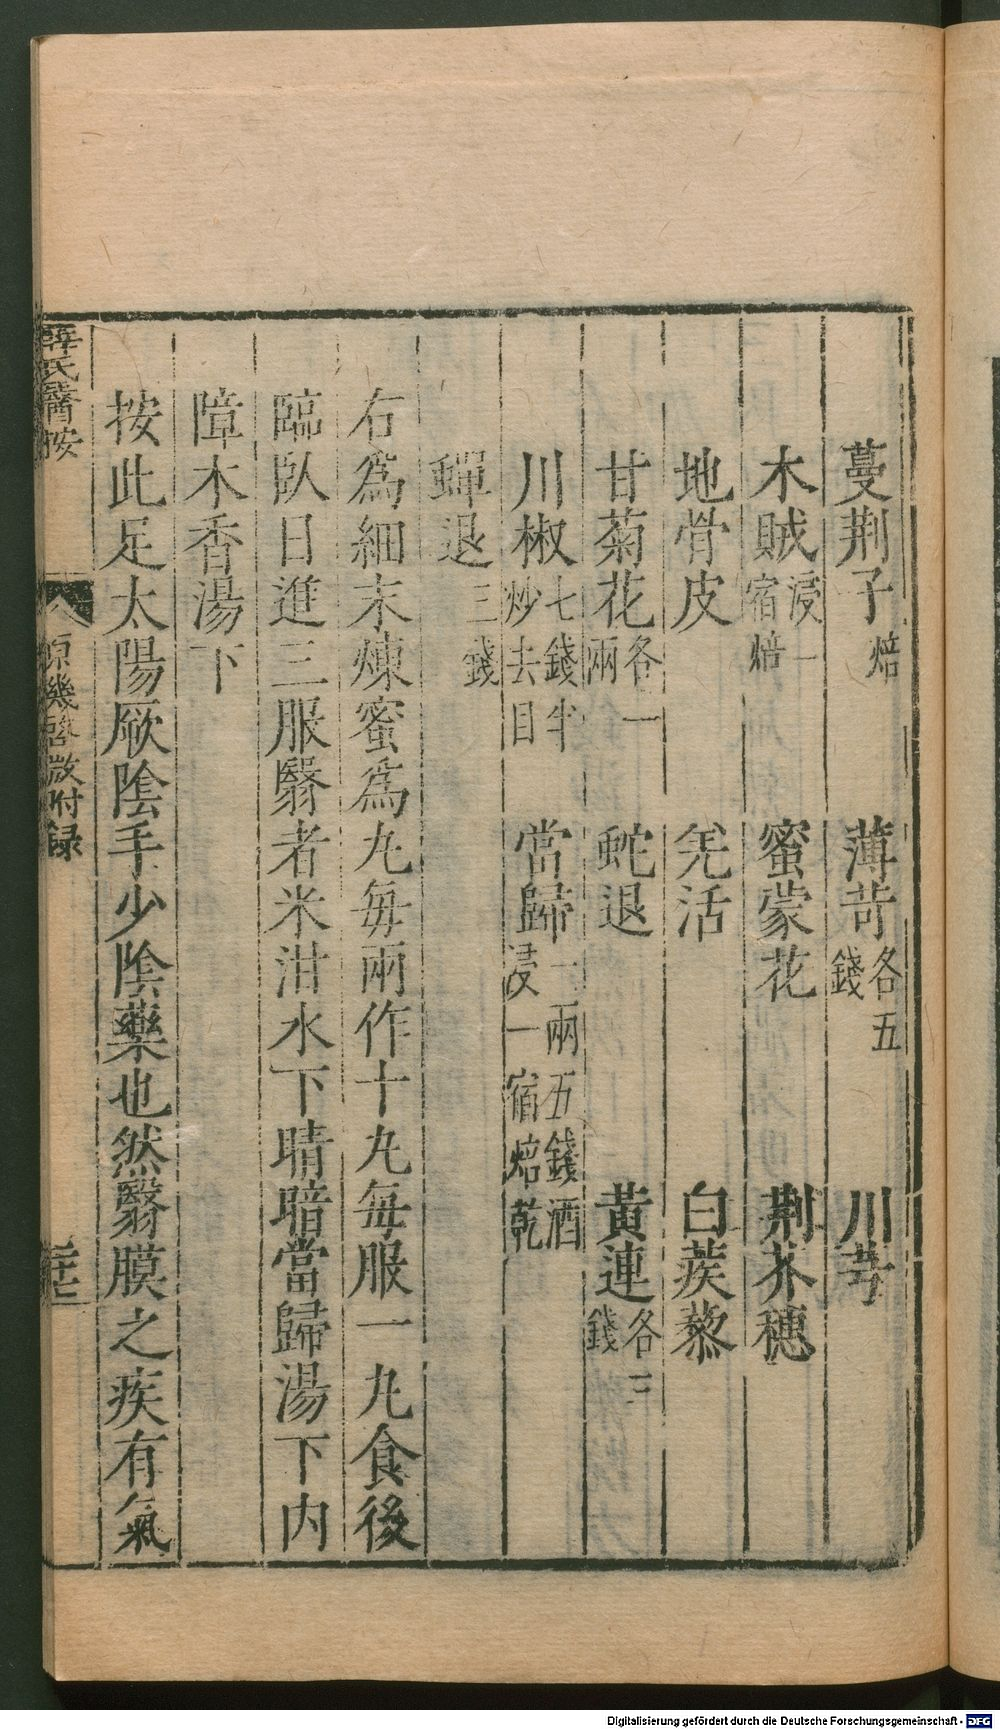 蔓荆子焙　薄苛各五錢　川芎
木賊浸一宿焙　蜜蒙花　荆芥穗
地骨皮　羌活　白蒺藜
甘菊花各一兩　蛇退　黃連各三錢
川椒七錢半炒去目　當歸一兩五錢酒浸一宿焙乾
蟬退三錢
右爲細末煉蜜爲丸每兩作十丸每服一丸食後
臨臥日進三服翳者米泔水下睛暗當歸湯下内
障木香湯下
按此足太陽厥陰手少陰藥也然翳膜之疾有氣
薛氏醫按
原機啓微附録
Digitalisierung gefördert durch die Deutsche Forschungsgemeinschaft - DFG